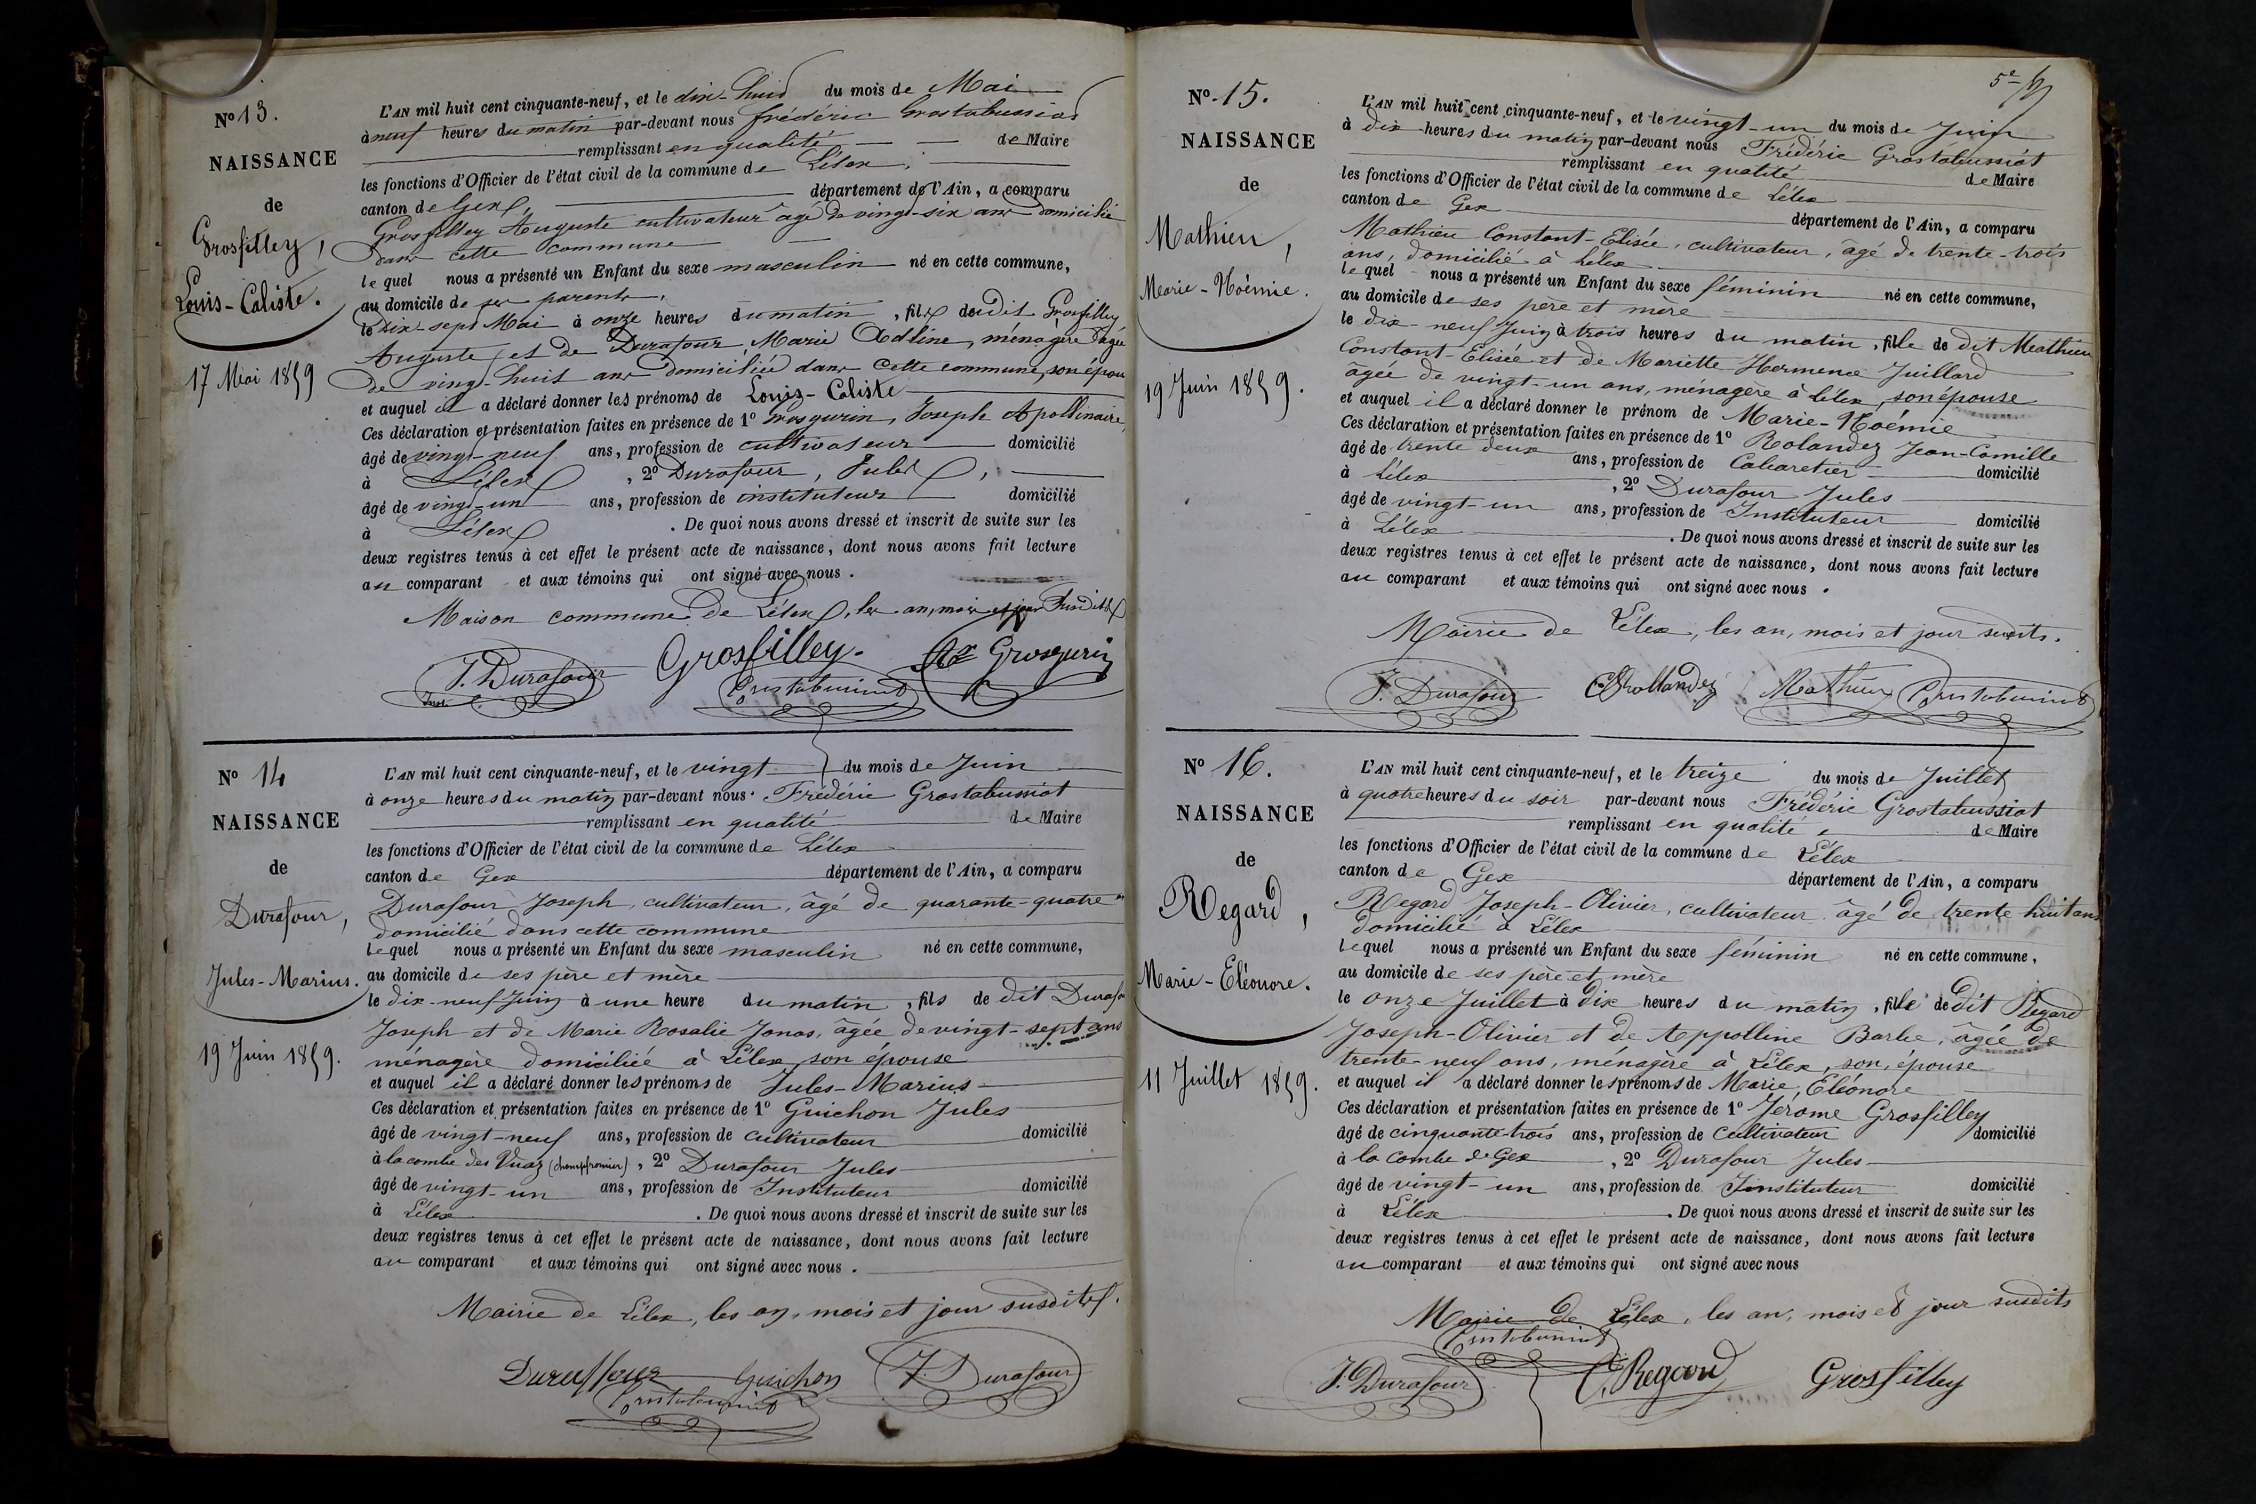 Nº 13.
NAISSANCE
de
Grosfilley,
Louis-Caliste.
17 Mai 1859
L'AN mil huit cent cinquante-neuf, et le dix-huit du mois de Mai
à neuf heures du matin par-devant nous frédéric Grostabussiat
remplissant en qualité de Maire
les fonctions d'Officier de l'état civil de la commune de Lélex,
canton de Gex, département de l'Ain, a comparu
Grosfilley Auguste cultivateur âgé de vingt-six ans domicilié
dans cette commune
lequel nous a présenté un Enfant du sexe masculin né en cette commune,
au domicile de ses parents,
le dix sept Mai à onze heures du matin, fils dudit Grosfilley
Auguste et de Durafour Marie Adline, ménagère âgée
de vingt-huit ans domiciliée dans cette commune, son épouse
et auquel il a déclaré donner les prénoms de Louis-Caliste
Ces déclaration et présentation faites en présence de 1º Grosgurin, Joseph Apollinaire,
âgé de vingt-neuf ans, profession de cultivateur domicilié
à Lélex, 2º Durafour, Jules,
âgé de vingt-un ans, profession de instituteur domicilié
à Lélex. De quoi nous avons dressé et inscrit de suite sur les
deux registres tenus à cet effet le présent acte de naissance, dont nous avons fait lecture
au comparant et aux témoins qui ont signé avec nous.
Maison commune de Lélex, les an, mois et jour susdits
J. Durafour Grosfilley. Ax Grosgurin
Grostabussiat
Nº 14
NAISSANCE
de
Durafour,
Jules-Marius.
19 Juin 1859.
L'AN mil huit cent cinquante-neuf, et le vingt du mois de Juin
à onze heures du matin par-devant nous Frédéric Grostabussiat
remplissant en qualité de Maire
les fonctions d'Officier de l'état civil de la commune de Lélex
canton de Gex département de l'Ain, a comparu
Durafour Joseph, cultivateur, âgé de quarante-quatre
domicilié dans cette commune
lequel nous a présenté un Enfant du sexe masculin né en cette commune,
au domicile de ses père et mère
le dix-neuf Juin à une heure du matin, fils de dit
Joseph et de Marie Rosalie Jonas, âgée de vingt-sept ans
ménagère domiciliée à Lélex, son épouse
et auquel il a déclaré donner les prénoms de Jules-Marius
Ces déclaration et présentation faites en présence de 1º Guichon Jules
âgé de vingt-neuf ans, profession de cultivateur domicilié
à la combe des Vuaz (champfromier), 2º Durafour Jules
âgé de vingt-un ans, profession de Instituteur domicilié
à Lélex. De quoi nous avons dressé et inscrit de suite sur les
deux registres tenus à cet effet le présent acte de naissance, dont nous avons fait lecture
au comparant et aux témoins qui ont signé avec nous.
Mairie de Lélex, les an, mois et jour susdits.
Duraffour Guichon J. Durafour
Grostabussiat
Nº 15.
NAISSANCE
de
Mathieu,
Marie-Noémie.
19 Juin 1859.
L'AN mil huit cent cinquante-neuf, et le vingt-un du mois de Juin
à dix heures du matin par-devant nous Frédéric Grostabussiat
remplissant en qualité de Maire
les fonctions d'Officier de l'état civil de la commune de Lélex
canton de Gex département de l'Ain, a comparu
Mathieu Constant-Elisée, cultivateur, âgé de trente-trois
ans, domicilié à Lélex
lequel nous a présenté un Enfant du sexe féminin né en cette commune,
au domicile de ses père et mère
le dix-neuf Juin à trois heures du matin, fille de dit Mathieu
Constant-Elisée et de Mariette Hermence Juillard
âgée de vingt-un ans, ménagère à Lélex, son épouse
et auquel il a déclaré donner le prénom de Marie-Noémie
Ces déclaration et présentation faites en présence de 1º Rolandez Jean-Camille
âgé de trente deux ans, profession de Cabaretier domicilié
à Lélex, 2º Durafour Jules
âgé de vingt-un ans, profession de Instituteur domicilié
à Lélex. De quoi nous avons dressé et inscrit de suite sur les
deux registres tenus à cet effet le présent acte de naissance, dont nous avons fait lecture
au comparant et aux témoins qui ont signé avec nous.
Mairie de Lélex, les an, mois et jour susdits.
J. Durafour Rollandez Mathieu Grostabussiat
Nº 16.
NAISSANCE
de
Regard,
Marie-Eléonore.
11 Juillet 1859.
L'AN mil huit cent cinquante-neuf, et le treize du mois de Juillet
à quatre heures du soir par-devant nous Frédéric Grostabussiat
remplissant en qualité de Maire
les fonctions d'Officier de l'état civil de la commune de Lélex
canton de Gex département de l'Ain, a comparu
Regard Joseph-Olivier, cultivateur âgé de trente huit ans
domicilié à Lélex
lequel nous a présenté un Enfant du sexe féminin né en cette commune,
au domicile de ses père et mère
le onze Juillet à dix heures du matin, fille dedit Regard
Joseph-Olivier et de Appolline Barbe, âgée de
trente-neuf ans, ménagère à Lélex, son épouse
et auquel il a déclaré donner les prénoms de Marie, Eléonore
Ces déclaration et présentation faites en présence de 1º Jérôme Grosfilley
âgé de cinquante-trois ans, profession de cultivateur domicilié
à la combe de Gex, 2º Durafour Jules
âgé de vingt-un ans, profession de Instituteur domicilié
à Lélex. De quoi nous avons dressé et inscrit de suite sur les
deux registres tenus à cet effet le présent acte de naissance, dont nous avons fait lecture
au comparant et aux témoins qui ont signé avec nous
Mairie de Lélex, les an, mois et jour susdits
Grostabussiat
J. Durafour Regard Grosfilley